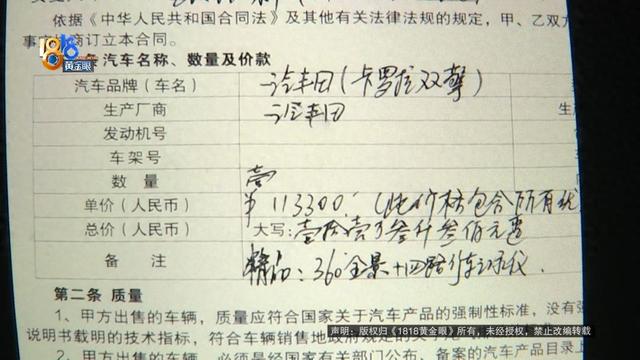 依据《中华人民共和国合同法》及其他有关法律法规的规定，甲、乙双方
1818黄金眼
商订立本合同。
条 汽车名称、数量及价款
汽车品牌（车名） 一汽丰田（卡罗拉双擎）
生产厂商 一汽丰田
发动机号
车架号
数 量 壹
单价（人民币） ￥113300.（此价格包含所有优
总价（人民币） 大写：壹拾壹万叁仟叁佰元整
备 注 精品：360全景+四路行车记录仪.
第二条 质量
1、甲方出售的车辆，质量应符合国家关于汽车产品的强制性标准，没有强
说明书载明的技术指标，符合车辆销售地政府规定的关于
声明：版权归《1818黄金眼》所有，未经授权，禁止改编转载
2、甲方出售的车辆，必须是经国家有关部门公布、备案的汽车产品目录上